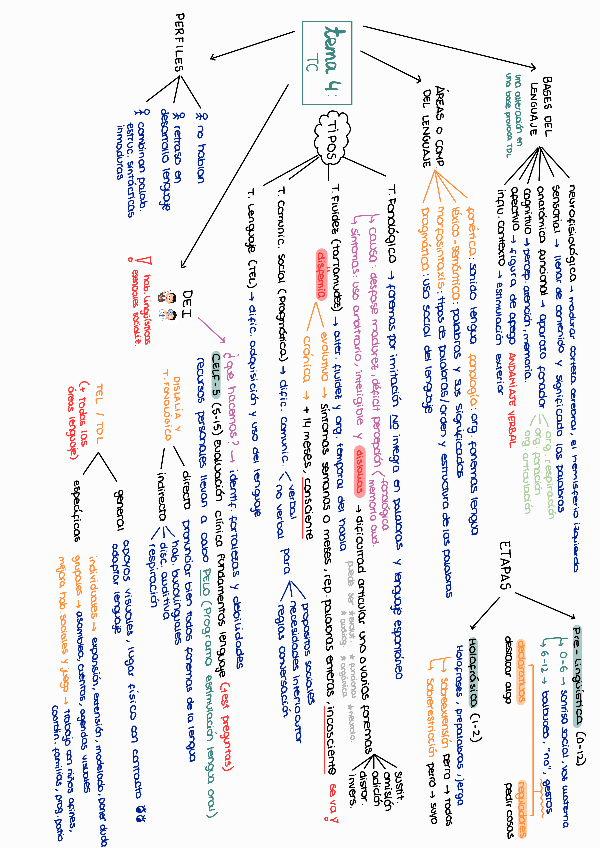 tema 4:
TC
BASES DEL
LENGUAJE
una alteración en
una base provoca TDL
neurofisiológica → madurar corteza cerebral, el hemisferio izquierdo
sensorial → llenar de contenido y significado las palabras
anatómica funcional → aparato fonador
org. respiración
org. fonación
org. articulación
cognitiva → percep. atención, memoria
afectiva → figura de apego ANDAMIAJE VERBAL
influ. contexto → estimulación exterior
ETAPAS
Pre-lingüística (0-12)
0-6 → sonrisa social, voz materna
6-12 → balbuceo, "no", gestos
declarativos
destacar algo
reguladores
pedir cosas
Holofrásica (1-2)
Holofrases, prepalabras, jerga
sobreextensión perro → todos
sobrerestricción perro → suyo
ÁREAS O COMP
DEL LENGUAJE
fonética: sonido lengua fonología: org. fonemas lengua
léxico-semántica: palabras y sus significados
morfosintaxis: tipos de palabras/orden y estructura de las palabras
pragmática: uso social del lenguaje
TIPOS
T. Fonológico → fonemas por imitación NO integra en palabras y lenguaje espontáneo
causa: desfase madurez, déficit percepción
fonológica
memoria aud.
síntomas: uso arbitrario, inteligible y dislalias → dificultad articular uno o varios fonemas
sustit.
omisión
adición
distor.
invers.
T. Fluidez (tartamudez) → alter. fluidez y org. temporal del habla
disfemia
evolutiva → síntomas semanas o meses, rep. palabras enteras, incosciente se va!
crónica → + 14 meses, consciente
T. Comunic. social (pragmática) → dific. comunic.
verbal
no verbal
para
propósitos sociales
necesidades interlocutor
reglas conversación
T. Lenguaje (TEL) → dific. adquisición y uso del lenguaje
PERFILES
no hablan
retraso en
desarrollo lenguaje
combinan palab.
estruc. sintácticas
inmaduras
DEI
hab. lingüísticas
¿qué hacemos? → identif. fortalezas y debilidades
CELF-5 (5-15) Evaluación clínica fundamentos lenguaje (+est preguntas)
recursos personales llevan a cabo PELO (Programa estimulación lengua oral)
DISLALIA Y
T. FONOLÓGICO
directo pronunciar bien todos fonemas de la lengua
indirecto
hab. bucolinguales
disc. auditiva
respiración
TEL / TDL
(+ todas las
áreas lenguaje)
general apoyos visuales, lugar físico con contacto
adaptar lenguaje
específicas
individuales → expansión, extensión, modelado, poner duda
grupales → asamblea, cuentos, agendas visuales
mejora hab. sociales y juego → trabajo con niños afines,
coordin. familias, prog. patio